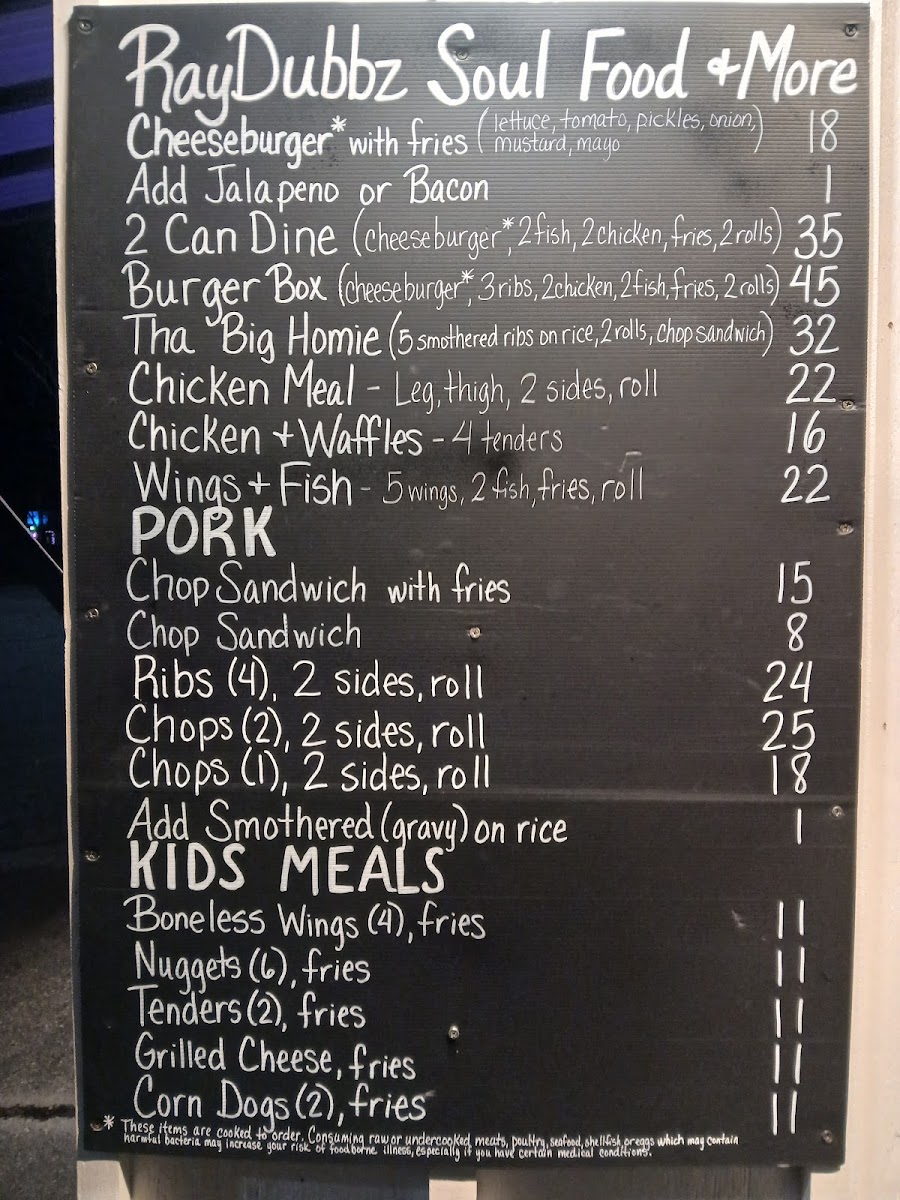 RayDubbz Soul Food + More
Cheeseburger* with fries (lettuce, tomato, pickles, onion, mustard, mayo) 18
Add Jalapeno or Bacon 1
2 Can Dine (cheeseburger*, 2 fish, 2 chicken, fries, 2 rolls) 35
Burger Box (cheeseburger*, 3 ribs, 2 chicken, 2 fish, fries, 2 rolls) 45
Tha Big Homie (5 smothered ribs on rice, 2 rolls, chop sandwich) 32
Chicken Meal - Leg, thigh, 2 sides, roll 22
Chicken + Waffles - 4 tenders 16
Wings + Fish - 5 wings, 2 fish, fries, roll 22
PORK
Chop Sandwich with fries 15
Chop Sandwich 8
Ribs (4), 2 sides, roll 24
Chops (2), 2 sides, roll 25
Chops (1), 2 sides, roll 18
Add Smothered (gravy) on rice 1
KIDS MEALS
Boneless Wings (4), fries 11
Nuggets (6), fries 11
Tenders (2), fries 11
Grilled Cheese, fries 11
Corn Dogs (2), fries 11
* These items are cooked to order. Consuming raw or undercooked meats, poultry, seafood, shellfish, or eggs which may contain
harmful bacteria may increase your risk of foodborne illness, especially if you have certain medical conditions.